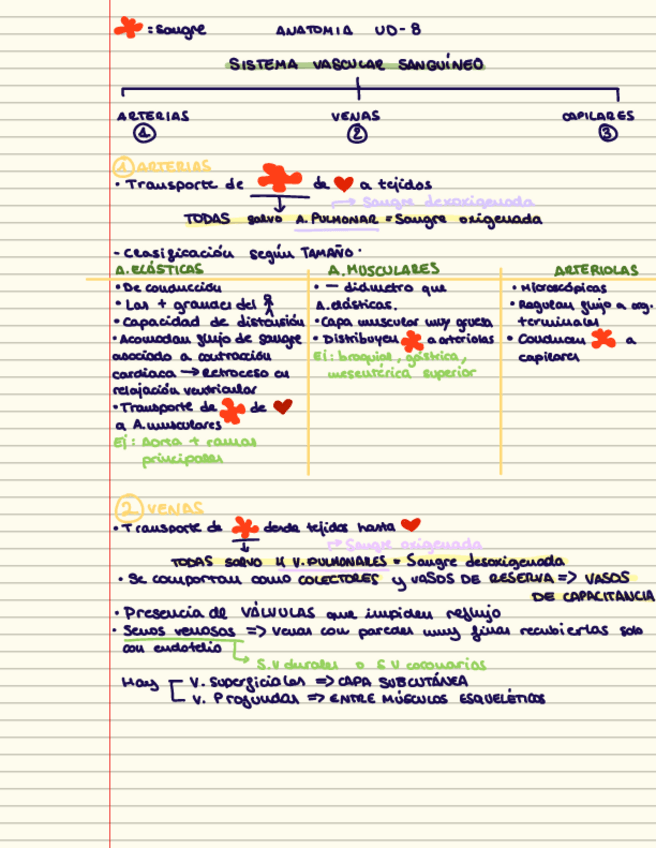 : Sangre ANATOMIA UD-8
SISTEMA VASCULAR SANGUÍNEO
ARTERIAS VENAS CAPILARES
1 2 3
1 ARTERIAS
• Transporte de de a tejidos
→ Sangre desoxigenada
TODAS salvo A. PULMONAR = Sangre oxigenada
- Clasificación según TAMAÑO.
A. ELÁSTICAS
• De conducción
• Las + grandes del
• Capacidad de distensión
• Acomodan flujo de sangre
asociado a contracción
cardiaca → Retroceso en
relajación ventricular
• Transporte de de
a A. musculares
Ej: Aorta + ramas
principales
A. MUSCULARES
• — diámetro que
A. elásticas.
• Capa muscular muy gruesa
• Distribuyen a arteriolas
Ej: braquial, gástrica,
mesentérica superior
ARTERIOLAS
• Microscópicas
• Regulan flujo a org.
terminales
• Conducen a
capilares
2 VENAS
• Transporte de desde tejidos hasta
→ Sangre oxigenada
TODAS salvo 4 V. PULMONARES = Sangre desoxigenada
• Se comportan como COLECTORES y VASOS DE RESERVA => VASOS
DE CAPACITANCIA
• Presencia de VÁLVULAS que impiden reflujo
• Senos venosos => Venas con paredes muy finas recubiertas solo
con endotelio
→ S.V durales o S.V coronarios
Hay V. Superficiales => CAPA SUBCUTÁNEA
V. Profundas => ENTRE MÚSCULOS ESQUELÉTICOS